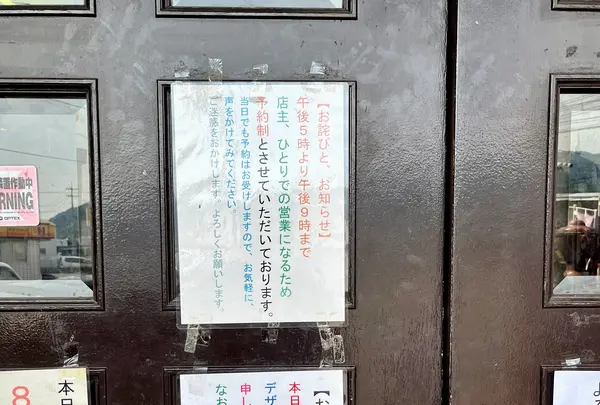 【お詫びと、お知らせ】
午後5時より午後9時まで
店主、ひとりでの営業になるため
予約制とさせていただいております。
当日でも予約はお受けしますので、お気軽に、
声をかけてみてください。
ご迷惑をおかけします。よろしくお願いします。
置作動中
RNING
【お
本日
デザ
申し
なお
本日
8